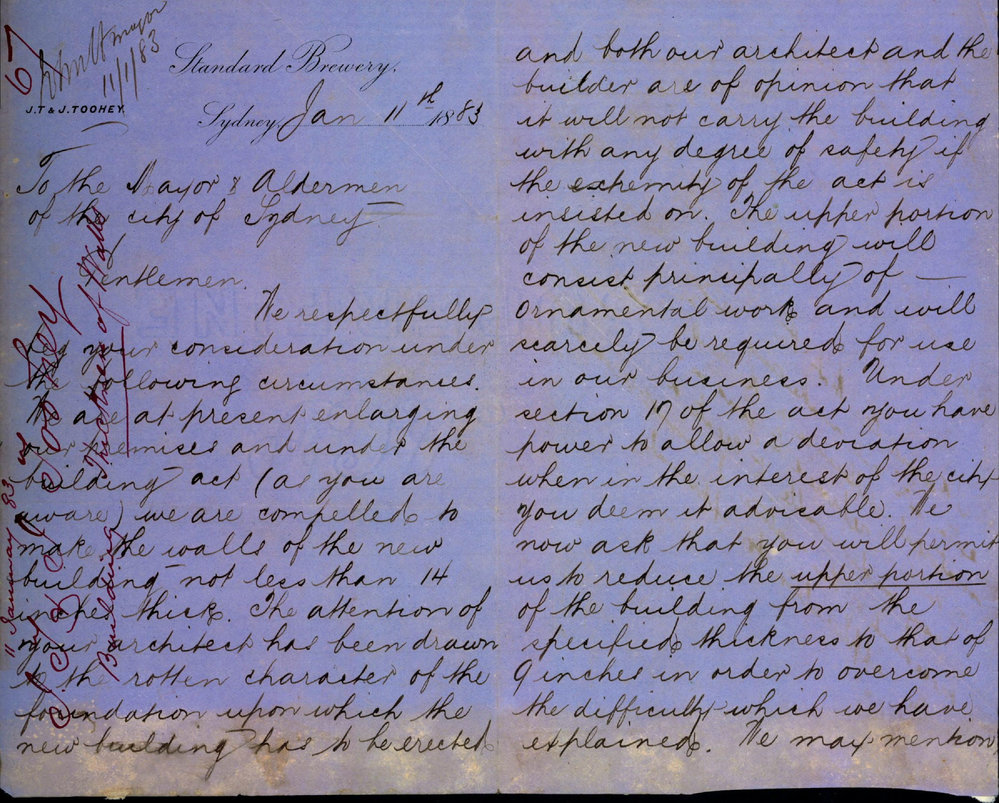 67
John H mayor
11/1/83
J.T & J. TOOHEY.
Standard Brewery,
Sydney, Jan 11th 1883
To the Mayor & Aldermen
of the city of Sydney
Gentlemen.
We respectfully
beg your consideration under
the following circumstances.
We are at present enlarging
our premises and under the
building act (as you are
aware) we are compelled to
make the walls of the new
building not less than 14
inches thick. The attention of
your architect has been drawn
to the rotten character of the
foundation upon which the
new building has to be erected
11 January 83
J T & J Toohey
Building Thickness of Walls
and both our architect and the
builder are of opinion that
it will not carry the building
with any degree of safety if
the extremity of the act is
insisted on. The upper portion
of the new building will
consist principally of —
ornamental work and will
scarcely be required for use
in our business. Under
section 17 of the act you have
power to allow a deviation
when in the interest of the city
you deem it advisable. We
now ask that you will permit
us to reduce the upper portion
of the building from the
specified thickness to that of
9 inches in order to overcome
the difficulty which we have
explained. We may mention